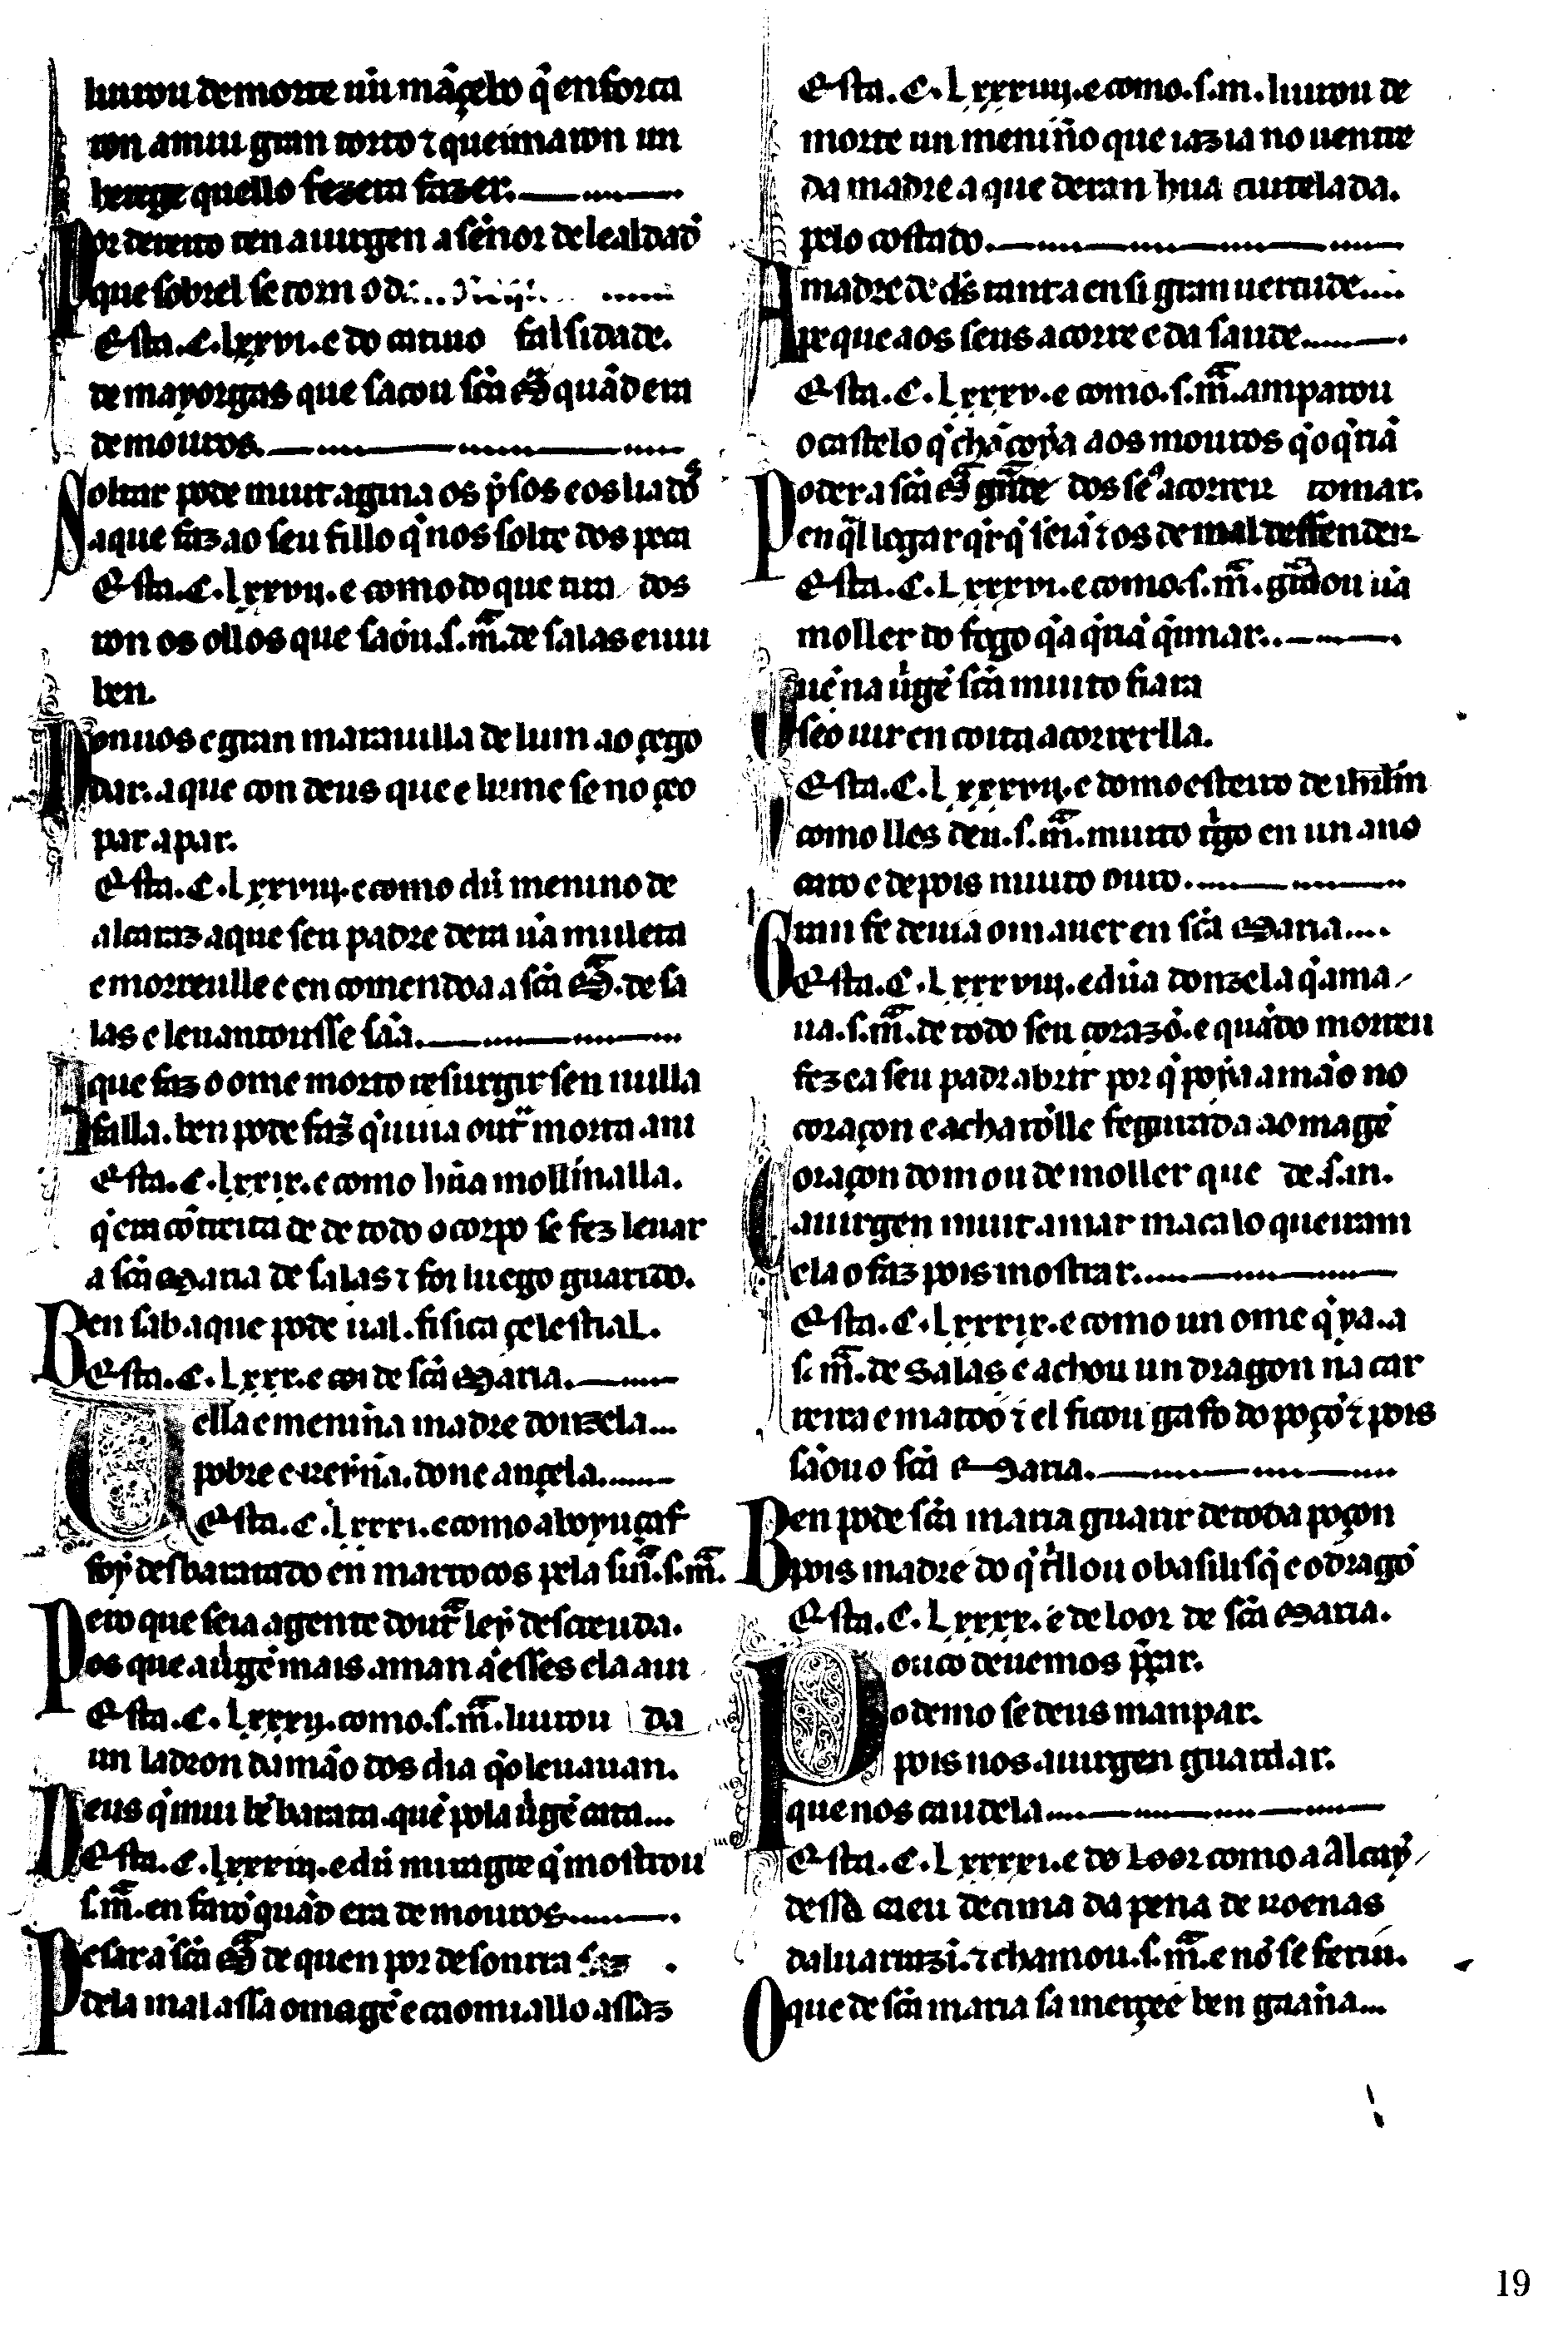 liurou de morte ũu mãçebo q̃ enforca
ron a mui gran torto ⁊ queimaron un
herege quello fezera fazer.
Por dereito ten a uirgen a seńor de lealdad
que sobrel se torn o d
Esta .C. lxxvi. e do catiuo falsidade.
de mayorgas que sacou scã M̃ quãd era
de mouros.
Soltar pode muit agina os p̃sos e os liados
a que faz ao seu fillo q̃ nos solte dos peca
Esta .C. lxxvii. e como do que tira dos
ron os ollos que sãou .s. m̃. de salas e uiu
ben.
Non uos e gran marauilla de lum ao çego
dar. a que con deus que e lume se no çeo
par a par.
Esta .C. lxxviii. e como dũ menino de
alcaraz a que seu padre dera ũa muleta
e morreulle e en comendoa a scã M̃. de sa
las e leuantousse sãa.
A que faz o ome morto resurgir sen nulla
falla. ben pode faz̃ q̃ uiua outr̃ morta ani
Esta .C. lxxix. e como hũa moller malla.
q̃ era cõtreita de de todo o corpo se fez leuar
a scã Maria de salas ⁊ foi luego guarido.
Ben sab a que pode ual. fisica çelestial.
Esta .C. lxxx. e coi de scã Maria.
Uella e menina madre donzela...
pobre e reyña. done ançela.
Esta .C. lxxxi. e como aboyuçaf
foy desbaratado en marrocos pela sin̄a .s. m̃.
Pero que seia a gente doutr̃ ley descreuda.
os que a uirgẽ mais aman a esses ela aiu
Esta .C. lxxxii. como .s. m̃. liurou da
un ladron da mão dos dia q̃ o leuauan.
Deus q̃ mui bẽ barata. quẽ pola uirgẽ cata...
Esta .C. lxxxiii. e dũ miragre q̃ mostrou
s. m̃. en farõ quãd era de mouros
Pesar a scã M̃ de quen por desonrra faz
dela mal a ssa omagẽ e caomiallo assaz
Esta .C. lxxxiiii. e como .s. m. liurou de
morte un meniño que iazia no uentre
da madre a que deran hũa cuitelada.
pelo costado.
A madre de d̃s tant a en si gran uertude....
per que aos seus acorre e da saude
Esta .C. lxxxv. e como .s. m̃. amparou
o castelo q̃ chãcoya aos mouros q̃ o q̃riã
Poder a scã M̃ grãde dos seꝰ acorrer tomar.
en q̃l logar q̃r q̃ seiã ⁊ os de mal deffender
Esta .C. lxxxvi. e como .s. m̃. gũdou ũa
moller do fogo q̃ a q̃riã q̃imar.
Quẽ na uirgẽ scã muito fiara
se o uir en coita acorrerlla.
Esta .C. lxxxvii. e do moesteiro de ihrlm
como lles deu .s. m̃. muito tͥgo en un ano
caro e depois muito ouro.
Gran fe deuia om auer en scã Maria....
Esta .C. lxxxviii. e dũa donzela q̃ ama
ua .s. m̃. de todo seu corazõ. e quãdo morreu
fezea seu padr abrir por q̃ poỹa a mão no
coraçon e acharõlle fegurada a omagẽ
Coraçon dom ou de moller que de .s. m.
a uirgen muit amar macalo queiram
ela o faz pois mostrar.
Esta .C. lxxxix. e como un ome q̃ ya .a
s. m̃. de Salas e achou un dragon na car
reira e matoó ⁊ el ficou gafo do poçõ ⁊ pois
sãouo scã Maria.
Ben pode scã maria guarir de toda poçon
pois madre do q̃ trillou o basilisq̃ e o dragõ
Esta .C. lxxxx. e de loor de scã Maria.
Pouco deuemos p̃çar.
o demo se deus manpar.
pois nos. a uirgen guardar.
que nos caudela.
Esta .C. lxxxxi. e do Loor como a alcay
dessa caeu de cima da pena de roenas
daluarrazĩ. ⁊ chamou .s. m̃. e nõ se feriu.
O que de scã maria sa merçee ben gaaña...
19